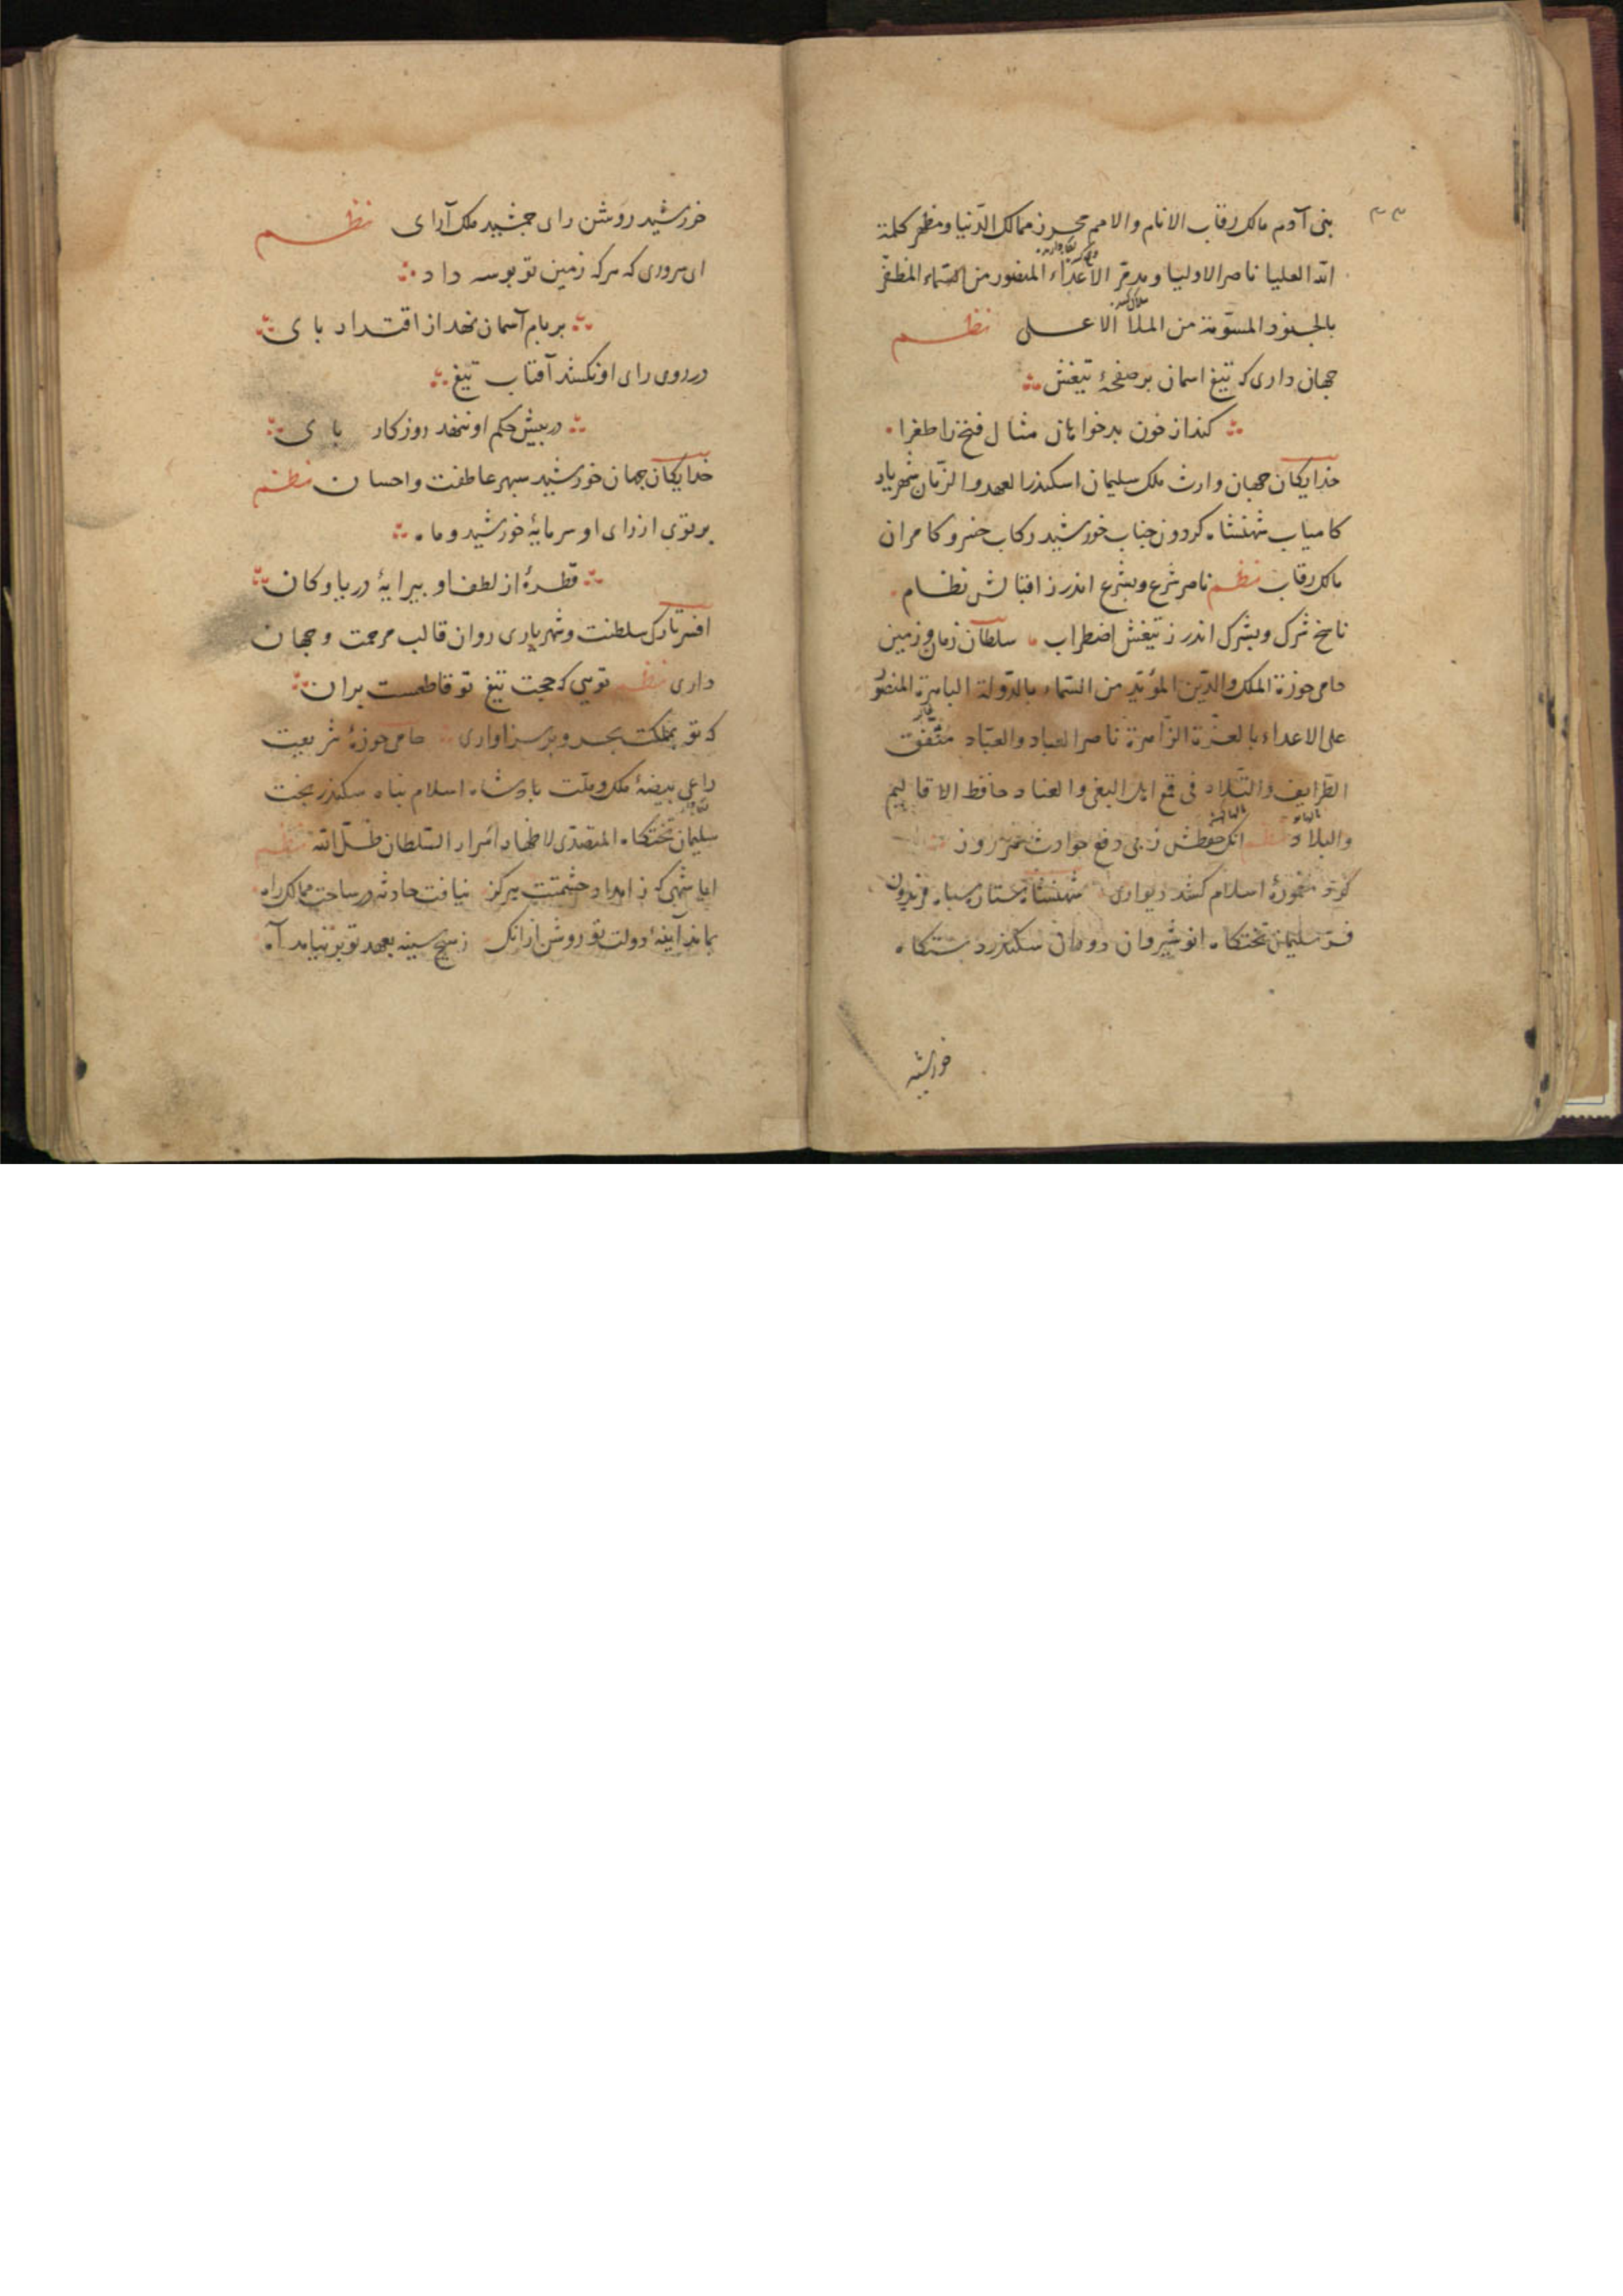 ۳۳
بنی آدم مالک رقاب الانام والامم محرز ممالک الدّنیا و مظهر کلمة
الله العلیا ناصر الاولیا و مدمّر الاعداء المنصور من السّماء المظفّر
بالجنود المسوّمة من الملأ الاعلی نظم
جهان داری که تیغ اسمان بر صفحهٔ تیغش
کند از خون بدخواهان مثال فتح را طغرا
خدایکان جهان وارث ملک سلیمان اسکندر العهد والزّمان شهریار
کامیاب شهنشاه کردون جناب خورشید رکاب خسرو کامران
مالک رقاب نظم ناصر شرع و بشرع اندر ز اقبالش نظام
ناسخ شرک و بشرک اندر ز تیغش اضطراب سلطان زمان و زمین
حامی حوزة الملک والدّین المؤیّد من السّماء بالدّولة الباهرة المنصور
علی الاعداء بالعزّة الزّاهرة ناصر العباد والعبّاد متّفق
الطّرایف والتّلاد فی قمع اهل البغی والعناد حافظ الاقالیم
والبلاد نظم انک حفظش ز پی دفع حوادث هر روز
کرد معمورهٔ اسلام کشد دیواری شهنشاه ستاره سپاه فریدون
فرّ سلیمان تختکاه انوشیروان دودمان سکندر دستکاه
خورشید
خورشید روشن رای جمشید ملک آرای نظم
ای سروری که هرکه زمین تو بوسه داد
بر بام آسمان نهد از اقتدار بای
در روی رای او نکشد آفتاب تیغ
در بیش حکم او ننهد روزکار بای
خدایکان جهان خورشید سبهر عاطفت واحسان نظم
برتوی از رای او سرمایهٔ خورشید و ماه
قطرهٔ از لطف او بیرایهٔ دریا و کان
افسر تارک سلطنت و شهریاری روان قالب مرحمت و جهان
داری نظم تویی که حجت تیغ تو قاطعست بران
که تو بمملکت بحر و بر سزاواری حامی حوزهٔ شریعت
راعی بیضهٔ ملک و ملّت بادشاه اسلام بناه سکندر بخت
سلیمان تختکاه المتصدّی لاظهار اسرار السّلطان ظلّ الله نظم
ایا شهی که ز امداد حشمتت هرکز نیافت حادثه در ساحت ممالک راه
بماند آینهٔ دولت تو روشن ازانک ز هیچ سینه بعهد تو بر نیامد آه